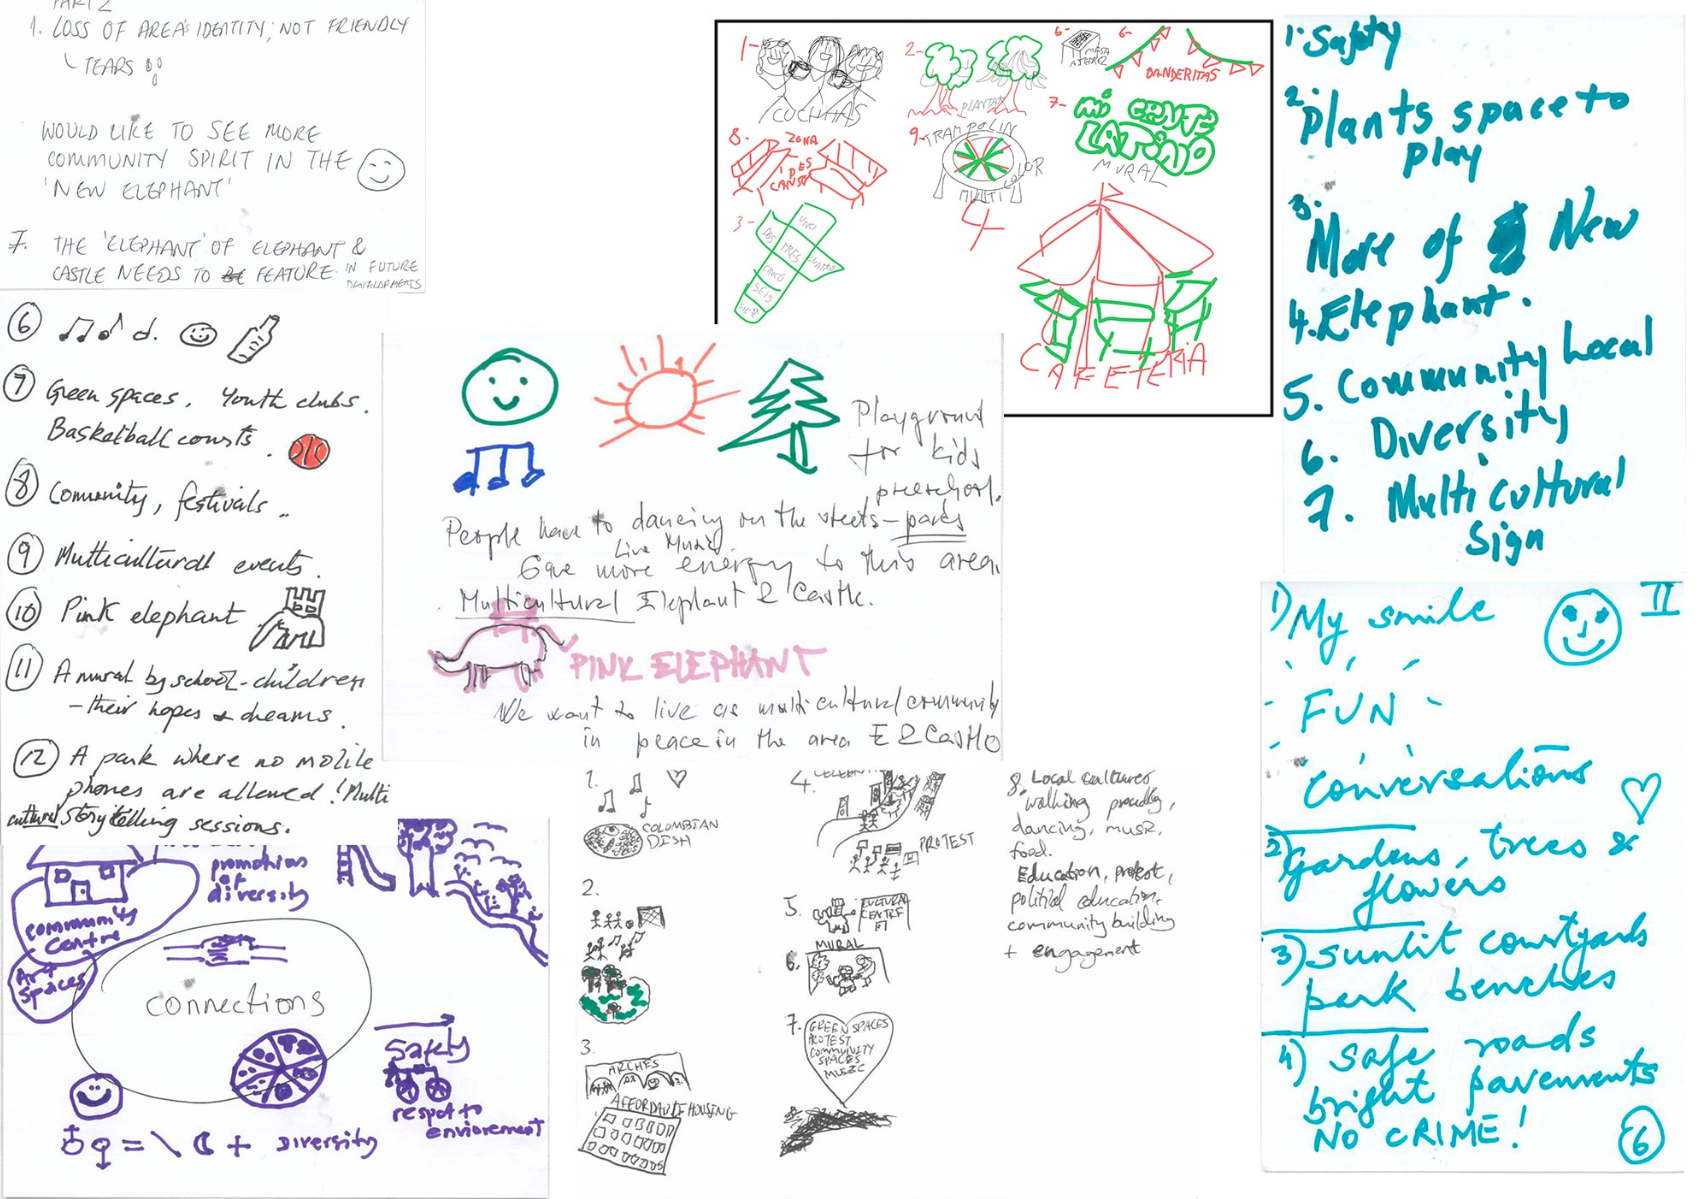 PART 2
1. LOSS OF AREA'S IDENTITY; NOT FRIENDLY
TEARS
WOULD LIKE TO SEE MORE
COMMUNITY SPIRIT IN THE
'NEW ELEPHANT'
7. THE 'ELEPHANT' OF ELEPHANT &
CASTLE NEEDS TO FEATURE IN FUTURE
DEVELOPMENTS
6
7 Green spaces. Youth clubs.
Basketball courts.
8 Comunity, festivals..
9 Multicultural events.
10 Pink elephant
11 A mural by school-children
- their hopes & dreams.
12 A park where no mobile
phones are allowed! Multi
cultural Storytelling sessions.
Playground
for kids
preschool.
People have to dancing on the streets - parks
Live Music
Give more energy to this area.
Multicultural Elephant & Castle.
PINK ELEPHANT
We want to live as multicultural community
in peace in the area E & Castle
1-
CUCHARAS
2-
PLANTAS
6-
MESA
6-
BANDERITAS
7-
MI GENTE
LATINO
MURAL
8.
ZONA
DES
CANSO
9-
TRAMPOLIN
MULTI
COLOR
3-
UNO
DOS
TRES
CUATRO
CINCO
SEIS
SIETE
4
CAFETERIA
1. Safety
2. Plants space to
play
3. More of New
4. Elephant.
5. Community Local
6. Diversity
7. Multi cultural
Sign
II
1) My smile
FUN
conversations
2) Gardens, trees &
flowers
3) Sunlit courtyards
park benches
4) Safe roads
bright pavements
NO CRIME!
6
promotion
of
diversity
community
centre
Art
Spaces
connections
Safety
respet to
enviorement
= \ + diversity
1.
COLOMBIAN
DISH
2.
3.
ARCHES
AFFORDABLE HOUSING
4.
PROTEST
5.
CULTURAL
CENTRE
MURAL
6.
7.
GREEN SPACES
PROTEST
COMMUNITY
SPACES
MUSIC
8. Local cultures
walking proudly,
dancing, music,
food.
Education, protest,
political education,
community building
+ engagement